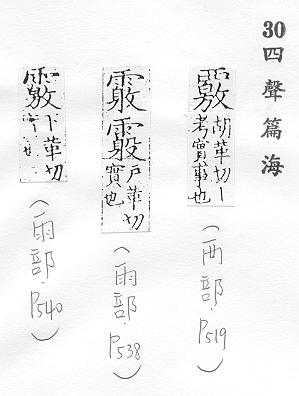 30四聲篇海
覈 胡革切丨
考實事也
(西部.P519)
戶革切
實也
(雨部.P538)
下革切
(雨部.P540)